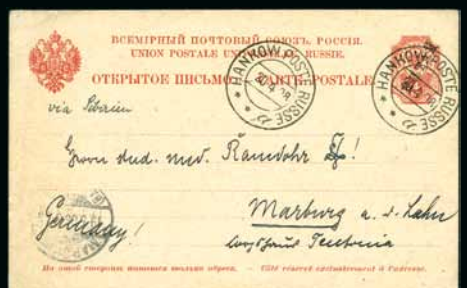 ВСЕМІРНЫЙ ПОЧТОВЫЙ СОЮЗЪ. РОССІЯ.
UNION POSTALE UNIVERSELLE. RUSSIE.
ОТКРЫТОЕ ПИСЬМО. CARTE POSTALE
HANKOW POSTE RUSSE
HANKOW POSTE RUSSE
via Siberien
Herrn stud. med. Ramdohr
Marburg a. d. Lahn
Germany!
Teutonia
На этой сторонѣ пишется только адресъ. — Côté réservé exclusivement à l'adresse.